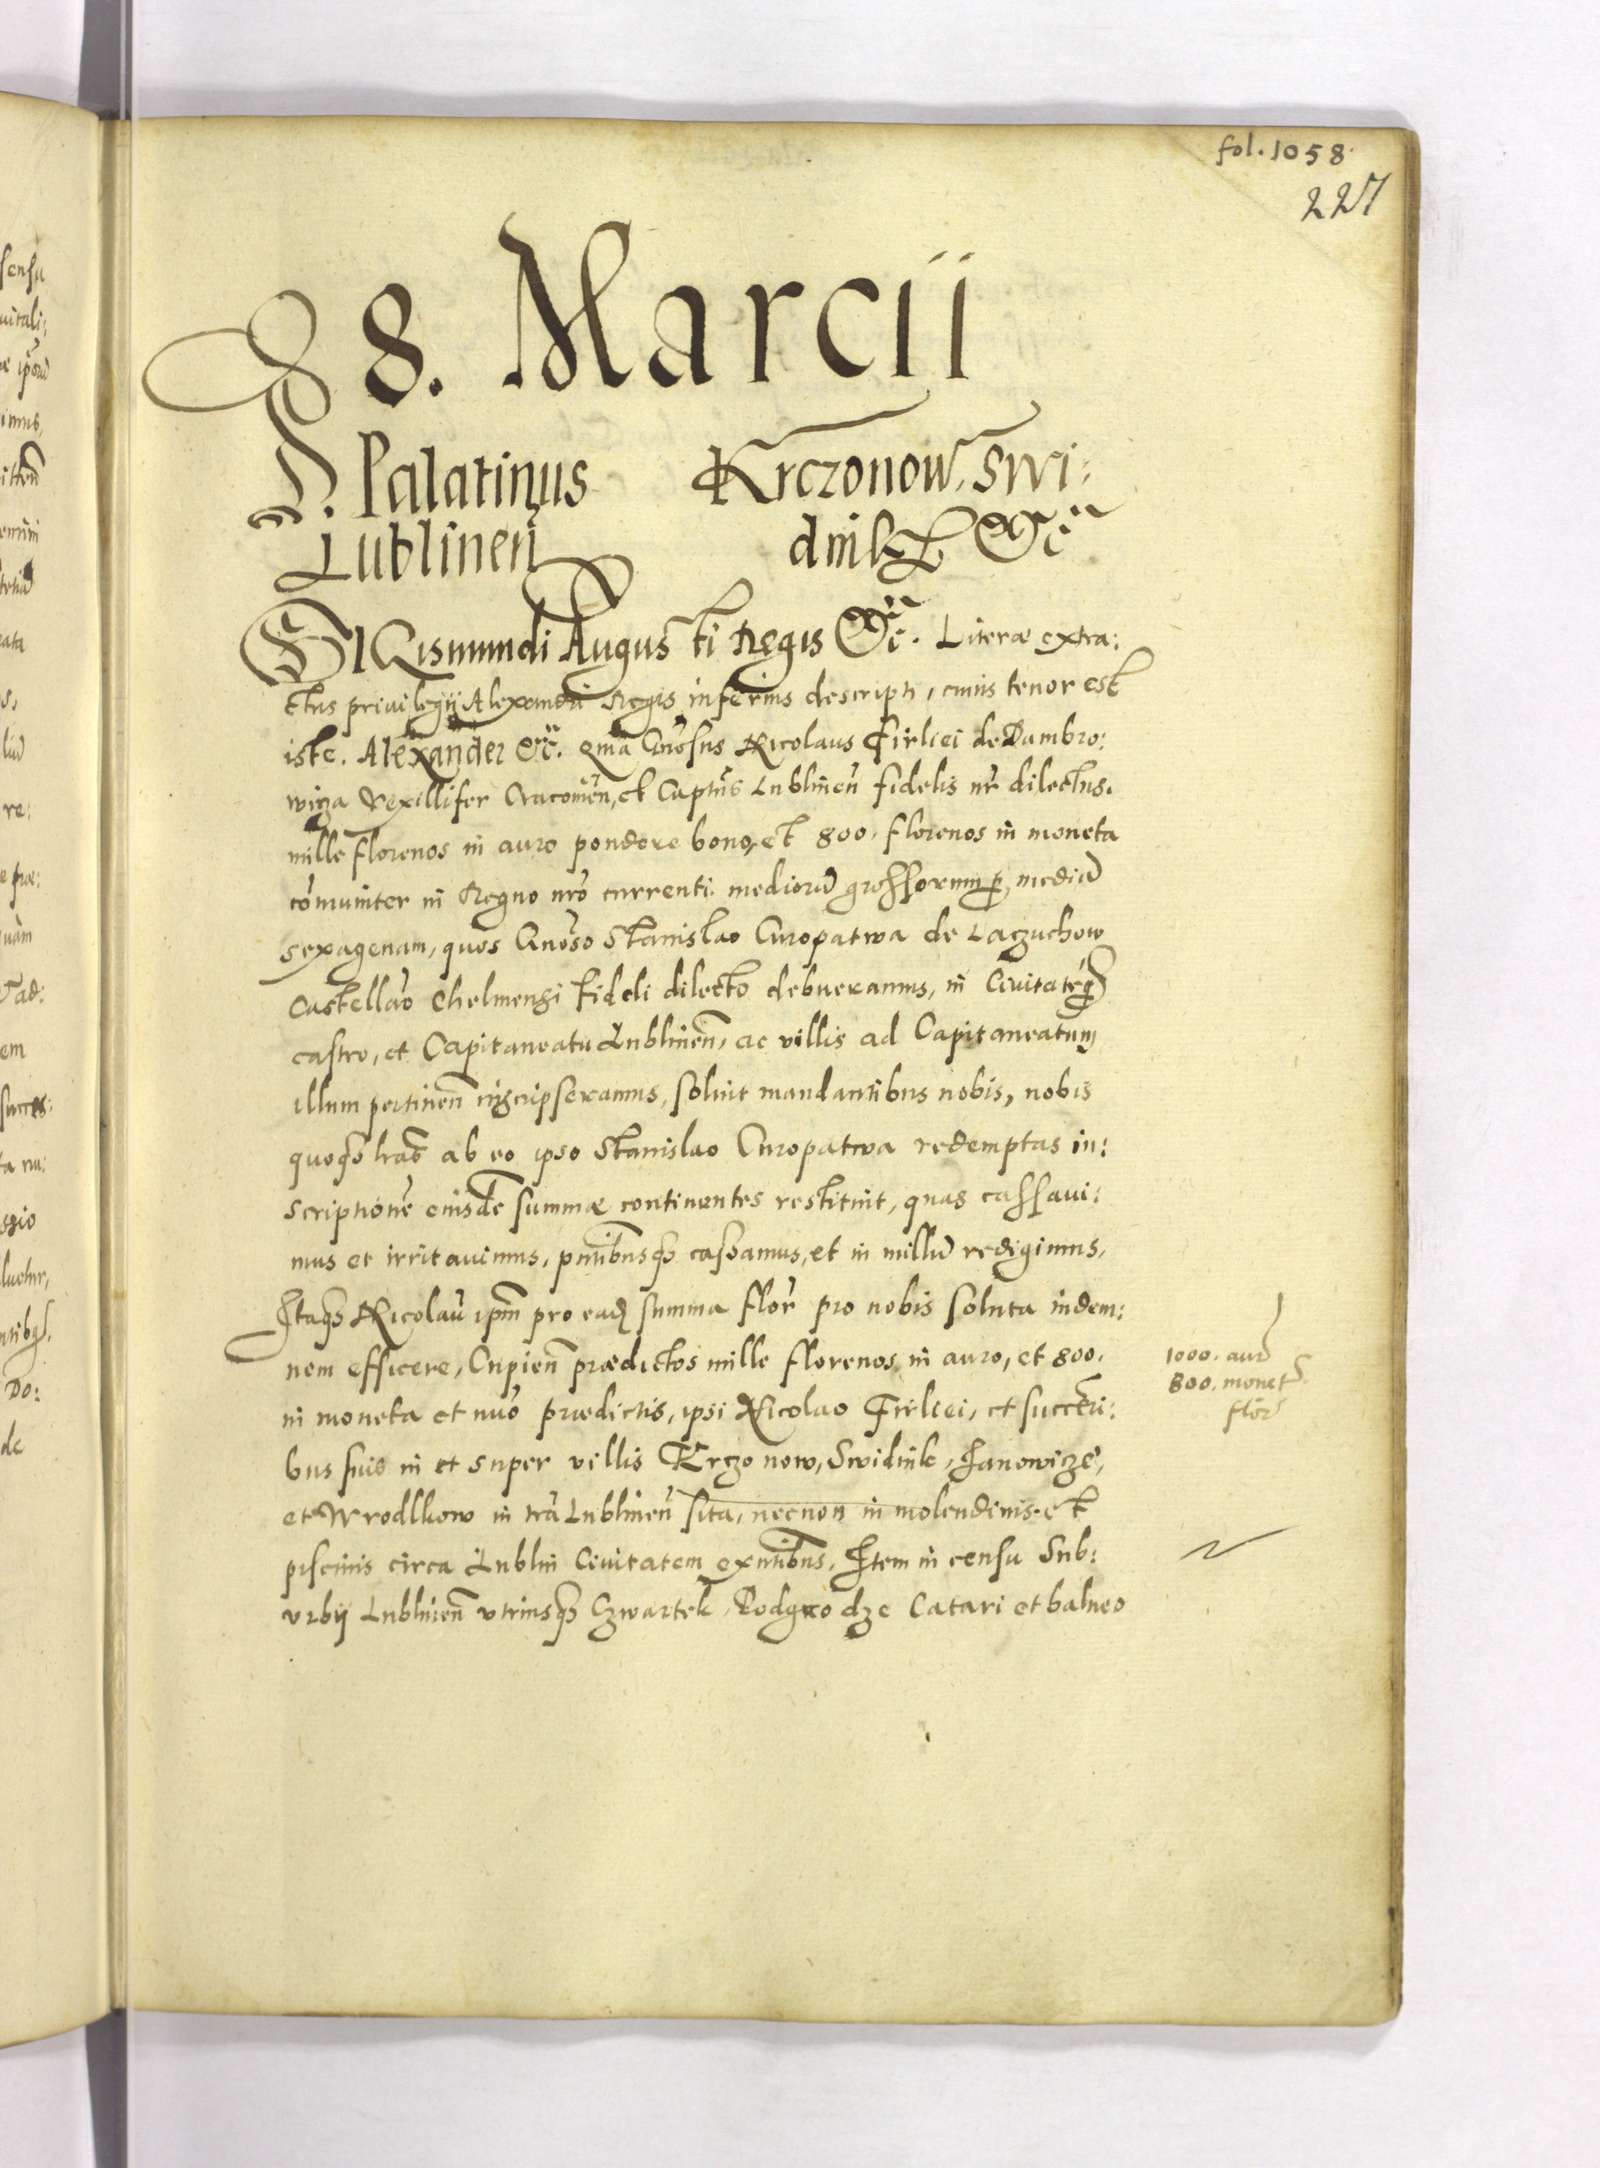 fol. 1058
227
8. Marcii
D. Palatinus Krczonow, Swi:
Lublineñ dnik &c̃
SIGismundi Augusti Regis &c̃. Literæ extra:
ctus priuilegij Alexandri Regis inferius descripti, cuius tenor est
iste. Alexander &c̃. Qmã Gñosus Nicolaus Firliei de Dambro:
wicza Vexillifer Cracouieñ, et Capitñs Lublineñ fidelis nr̃ dilectus.
mille florenos in auro pondere bono, et 800. florenos in moneta
cõmuniter in Regno nr̃o currenti mediorũ grossorum p mediã
sexagenam, quos Gñoso Stanislao Curopatwa de Laczuchow
Castellão Chelmensi fideli dilecto debueramus, in Ciuitate
castro, et Capitaneatu Lublineñ, ac villis ad Capitaneatum
illum pertineñ inscripseramus, soluit mandantibus nobis, nobis
quoqȝ lrãs ab eo ipso Stanislao Curopatwa redemptas in:
scriptionẽ eiusdẽ summæ continentes restituit, quas cassaui:
mus et irritauimus, pñtibusqȝ cassamus, et in nullũ redigimus,
Itaqȝ Nicolaũ ipm̃ pro eadȝ summa flor̃ pro nobis soluta indem:
nem efficere, Cupieñ prædictos mille florenos in auro, et 800.
1000. aur̃
800. monet
flor̃
in moneta et nũo prædictis, ipsi Nicolao Firliei, et succeri:
bus suis in et super villis Krczonow, Swidnik, Janowicze,
et Wrodlkow in trã Lublineñ sita, necnon in molendinis et
piscinis circa Lublin Ciuitatem exñtibus, Item in censu Sub:
vrbij Lublineñ vtriusqȝ Czwartek, Rodgrodze Catari et balneo